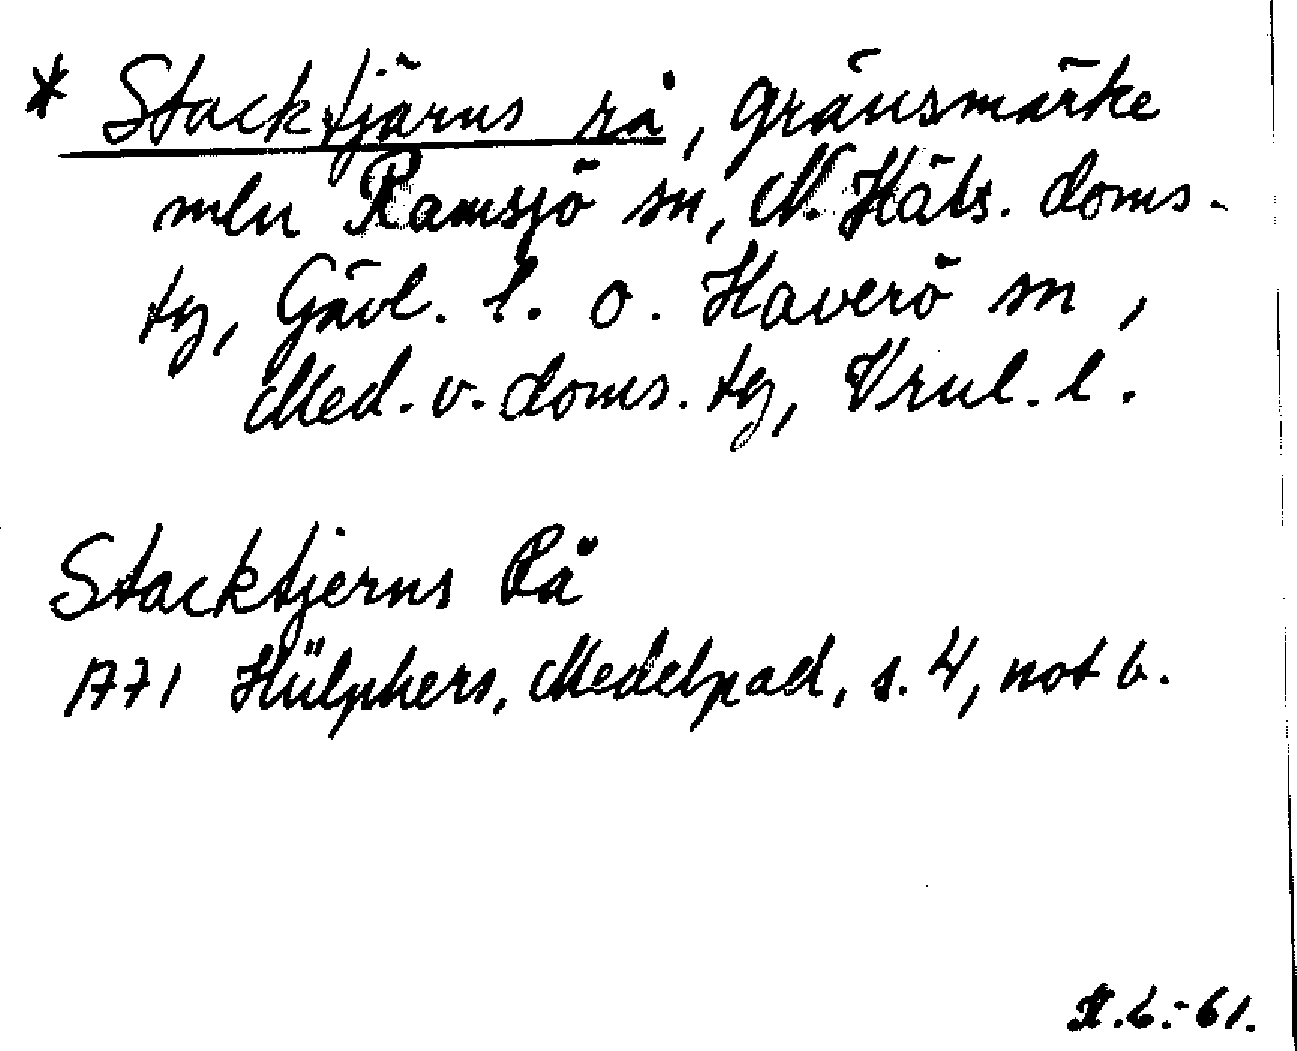 * Stacktjärns rå, gränsmärke
mln Ramsjö sn, N. Häls. doms-
tg, Gävl. l. o. Haverö sn,
Med. v. doms. tg, Vnrl. l.
Stacktjerns Rå
1771 Hülphers, Medelpad, s. 4, not b.
61.